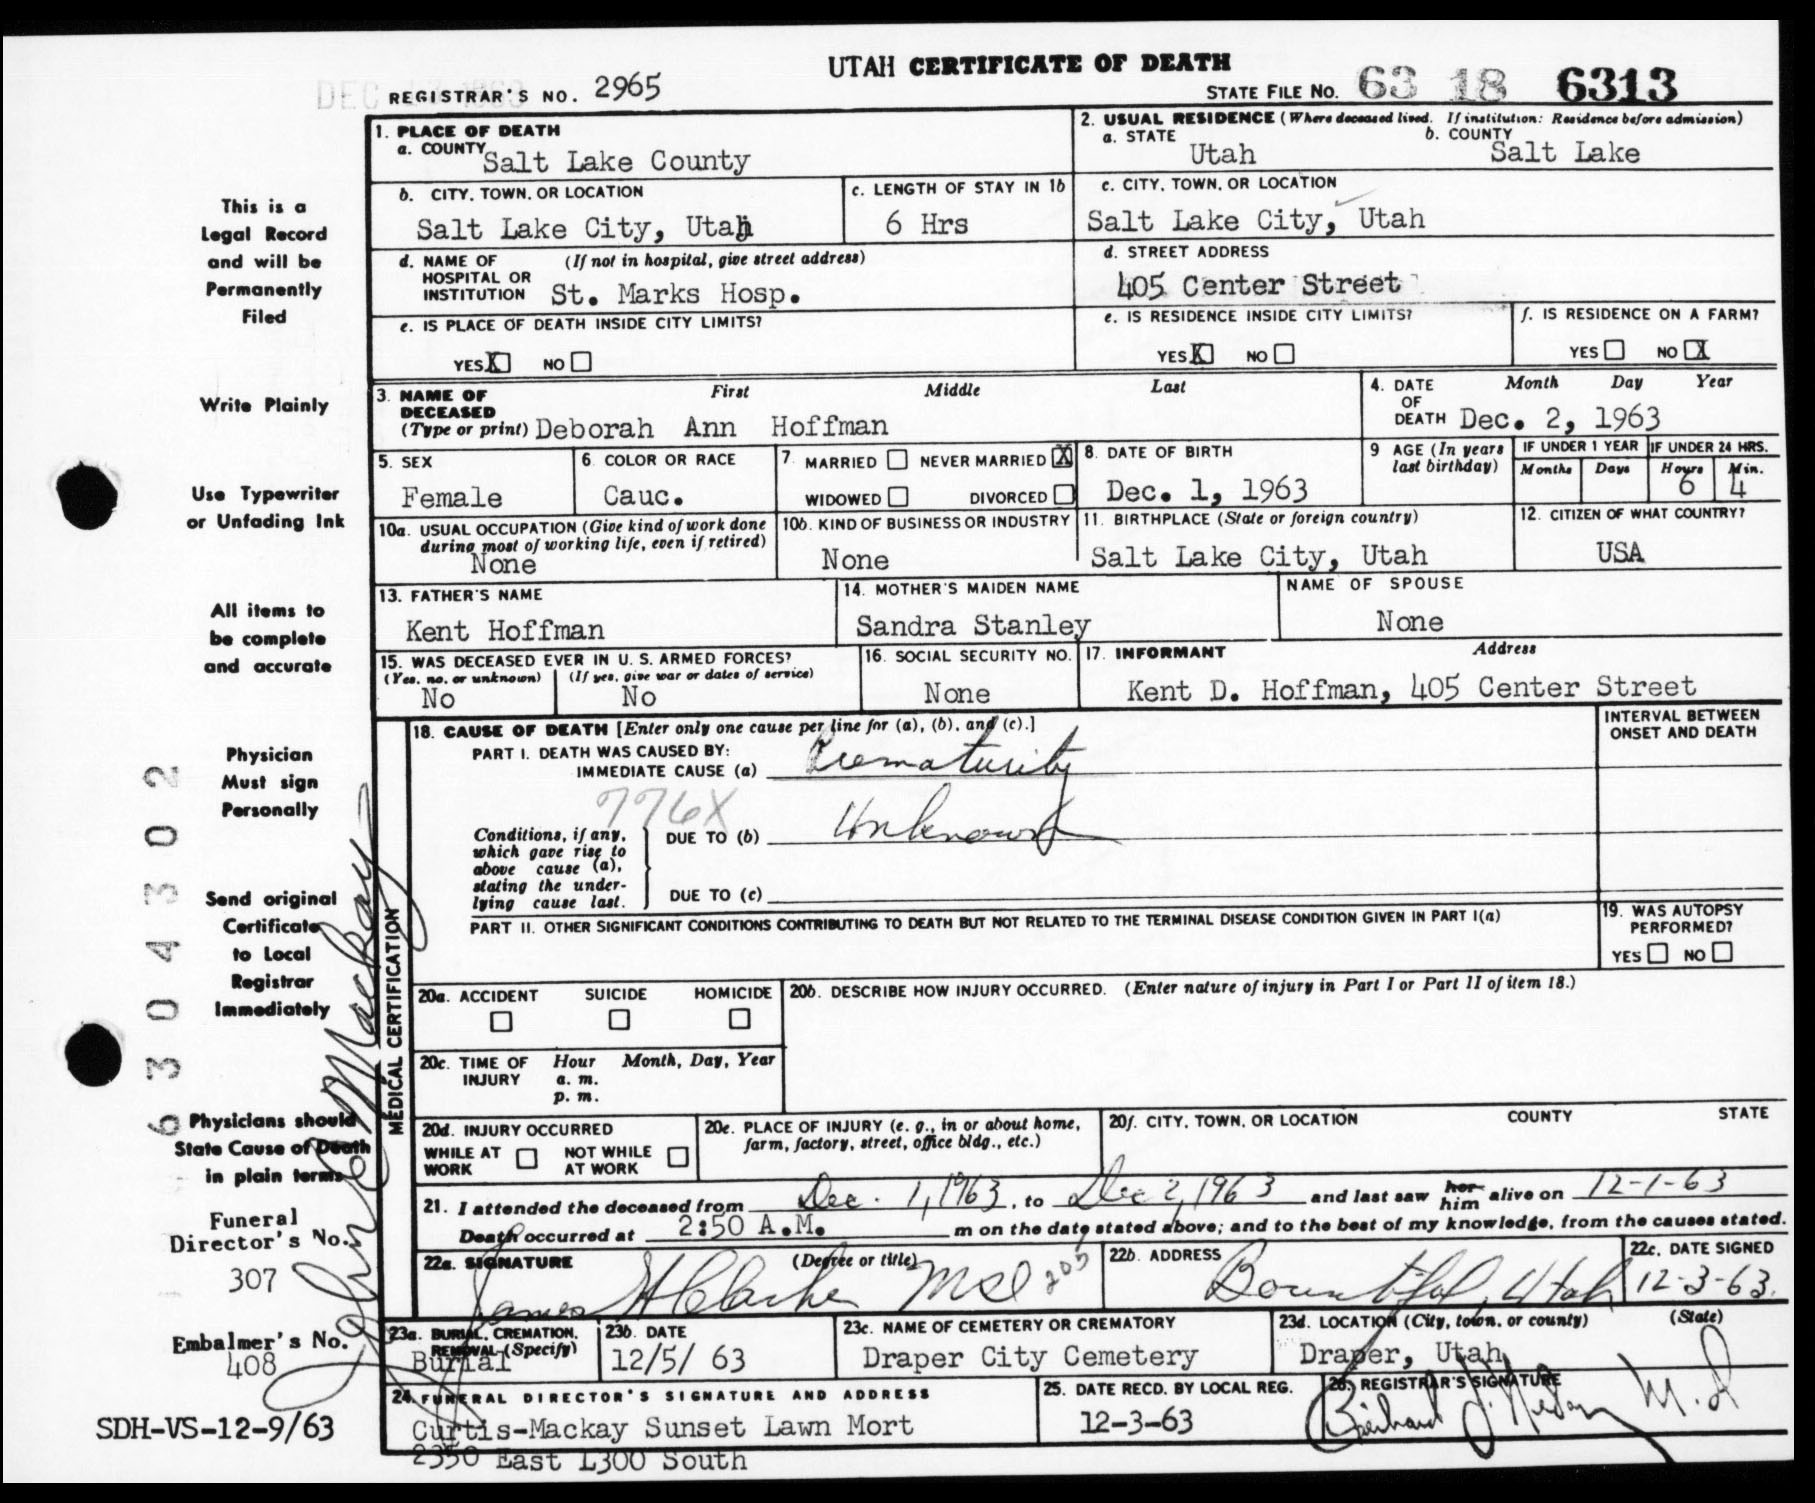 UTAH CERTIFICATE OF DEATH
REGISTRAR'S NO. 2965
STATE FILE NO. 63 18 6313
This is a
Legal Record
and will be
Permanently
Filed
Write Plainly
Use Typewriter
or Unfading Ink
All items to
be complete
and accurate
Physician
Must sign
Personally
Send original
Certificate
to Local
Registrar
Immediately
Physicians should
State Cause of Death
in plain terms
Funeral
Director's No.
307
Embalmer's No.
408
SDH-VS-12-9/63
6304302
1. PLACE OF DEATH
a. COUNTY Salt Lake County
2. USUAL RESIDENCE (Where deceased lived. If institution: Residence before admission)
a. STATE Utah b. COUNTY Salt Lake
b. CITY, TOWN, OR LOCATION
Salt Lake City, Utah
c. LENGTH OF STAY IN 1b
6 Hrs
c. CITY, TOWN, OR LOCATION
Salt Lake City, Utah
d. NAME OF HOSPITAL OR INSTITUTION (If not in hospital, give street address)
St. Marks Hosp.
d. STREET ADDRESS
405 Center Street
e. IS PLACE OF DEATH INSIDE CITY LIMITS?
YES X NO
e. IS RESIDENCE INSIDE CITY LIMITS?
YES X NO
f. IS RESIDENCE ON A FARM?
YES NO X
3. NAME OF DECEASED (Type or print) First Middle Last
Deborah Ann Hoffman
4. DATE OF DEATH Month Day Year
Dec. 2, 1963
5. SEX
Female
6. COLOR OR RACE
Cauc.
7. MARRIED NEVER MARRIED X
WIDOWED DIVORCED
8. DATE OF BIRTH
Dec. 1, 1963
9 AGE (In years last birthday)
IF UNDER 1 YEAR Months Days
IF UNDER 24 HRS. Hours Min.
6 4
10a. USUAL OCCUPATION (Give kind of work done during most of working life, even if retired)
None
10b. KIND OF BUSINESS OR INDUSTRY
None
11. BIRTHPLACE (State or foreign country)
Salt Lake City, Utah
12. CITIZEN OF WHAT COUNTRY?
USA
13. FATHER'S NAME
Kent Hoffman
14. MOTHER'S MAIDEN NAME
Sandra Stanley
NAME OF SPOUSE
None
15. WAS DECEASED EVER IN U. S. ARMED FORCES?
(Yes, no, or unknown) (If yes, give war or dates of service)
No No
16. SOCIAL SECURITY NO.
None
17. INFORMANT Address
Kent D. Hoffman, 405 Center Street
MEDICAL CERTIFICATION
18. CAUSE OF DEATH [Enter only one cause per line for (a), (b), and (c).]
INTERVAL BETWEEN ONSET AND DEATH
PART I. DEATH WAS CAUSED BY:
IMMEDIATE CAUSE (a) Prematurity
776X
Conditions, if any, which gave rise to above cause (a), stating the underlying cause last.
DUE TO (b) Unknown
DUE TO (c)
PART II. OTHER SIGNIFICANT CONDITIONS CONTRIBUTING TO DEATH BUT NOT RELATED TO THE TERMINAL DISEASE CONDITION GIVEN IN PART I(a)
19. WAS AUTOPSY PERFORMED?
YES NO
20a. ACCIDENT SUICIDE HOMICIDE
20b. DESCRIBE HOW INJURY OCCURRED. (Enter nature of injury in Part I or Part II of item 18.)
20c. TIME OF INJURY Hour Month, Day, Year
a. m.
p. m.
20d. INJURY OCCURRED
WHILE AT WORK NOT WHILE AT WORK
20e. PLACE OF INJURY (e. g., in or about home, farm, factory, street, office bldg., etc.)
20f. CITY, TOWN, OR LOCATION COUNTY STATE
21. I attended the deceased from Dec. 1, 1963, to Dec 2, 1963 and last saw her him alive on 12-1-63
Death occurred at 2:50 A.M. m on the date stated above; and to the best of my knowledge, from the causes stated.
22a. SIGNATURE (Degree or title)
James H Clarke MD 205
22b. ADDRESS
Bountiful, Utah
22c. DATE SIGNED
12-3-63
23a. BURIAL, CREMATION, REMOVAL (Specify)
Burial
23b. DATE
12/5/ 63
23c. NAME OF CEMETERY OR CREMATORY
Draper City Cemetery
23d. LOCATION (City, town, or county) (State)
Draper, Utah
24. FUNERAL DIRECTOR'S SIGNATURE AND ADDRESS
Curtis-Mackay Sunset Lawn Mort
2350 East 1300 South
25. DATE RECD. BY LOCAL REG.
12-3-63
26. REGISTRAR'S SIGNATURE
M.D
Mackay